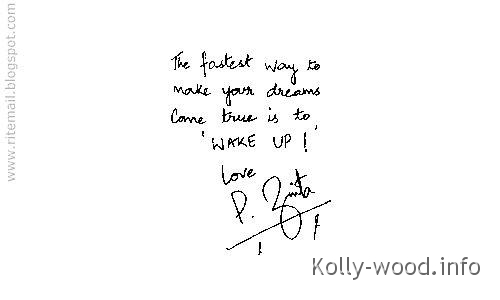 www.ritemail.blogspot.com
The fastest way to
make your dreams
Come true is to
'WAKE UP!'
Love
P. Zinta
Kolly-wood.info